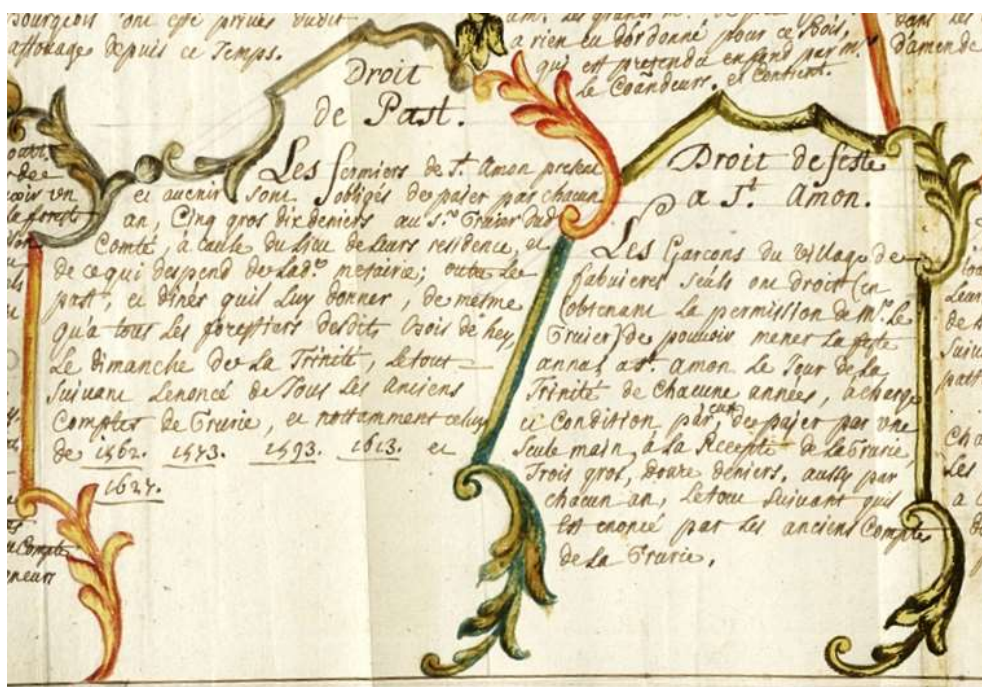 Bourgeois ont esté privés dudit
affouage depuis ce Temps.
a rien eu dordonné pour ce Bois,
qui est pretendu en fond par mr.
le Coandeurs. et Contient.
dans les
d'amende
Droit
de Past.
Les fermiers de St. Amon presens
et avenir sont obligés de paier par chacun
an, Cinq gros dix deniers au sr. Gruier dud
Comté, à cause du Lieu de Leurs residence, et
de ce qui despend de Lade. metairie; outre Le
past, et dîner quil Luy donner, de mesme
qu'a tous Les forestiers desdits bois de hey,
Le dimanche de La Trinité, Letout
Suivant Lenoncé de Tous Les anciens
Comptes de Grurie, et nottamment celuy
de 1562. 1573. 1593. 1613. et
1627.
Droit de feste
a St. Amon.
Les Garcons du village de
fabvieres seuls ont droit (en
obtenant La permission de Mr. Le
Gruier) de pouvoir mener La feste
annal a St. Amon Le Jour de La
Trinité de Chacune années, à charge
et Condition par eux de paier par une
Seule main, à La Recepte de La Grurie,
Trois gros, douze deniers, aussy par
chacun an, Letout Suivant quil
Est enoncé par Les anciens Comptes
de La Grurie.